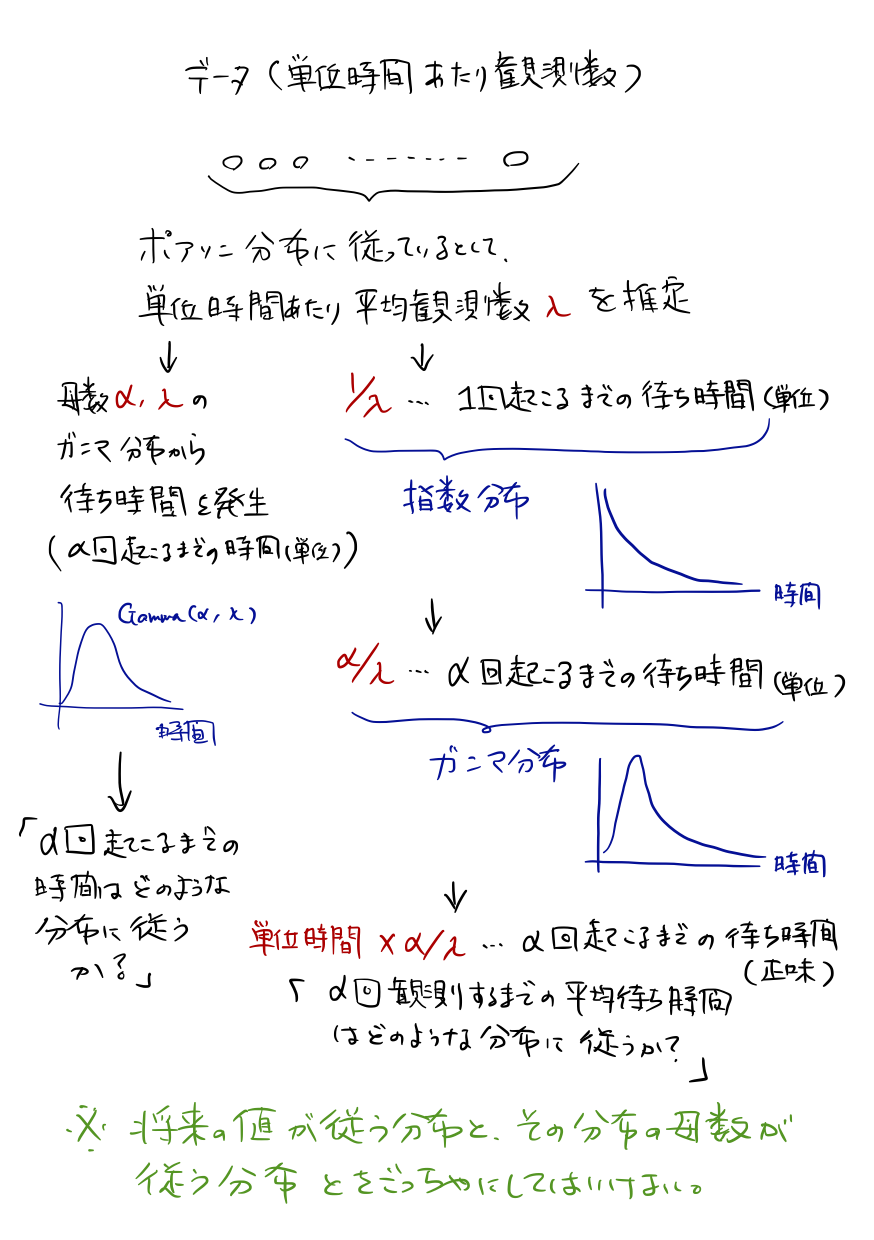 データ（単位時間あたり観測数）
ポアソン分布に従っているとして、
単位時間あたり平均観測数 λ を推定
母数 α, λ の
ガンマ分布から
待ち時間を発生
（α回起こるまでの時間（単位））
Gamma(α, λ)
時間
「α回起こるまでの
時間はどのような
分布に従う
か？」
1/λ … 1回起こるまでの待ち時間（単位）
指数分布
時間
α/λ … α回起こるまでの待ち時間（単位）
ガンマ分布
時間
単位時間 × α/λ … α回起こるまでの待ち時間
（正味）
「α回観測するまでの平均待ち時間
はどのような分布に従うか？
」
※ 将来の値が従う分布と、その分布の母数が
従う分布とをごっちゃにしてはいけない。